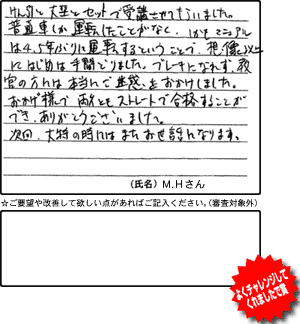 けん引と大型とセットで受講させてもらいました。
普通車しか運転したことがなく、しかもマニュアル
は4.5年ぶりに運転するということで、想像以上
にはじめは手間どりました。ブレーキになれず、教
官の方には本当に迷惑をおかけしました。
おかげ様で両方ともストレートで合格することが
でき、ありがとうございました。
次回、大特の時にはまたお世話になります。
(氏名) M.Hさん
☆ご要望や改善して欲しい点があればご記入ください。(審査対象外)
よくチャレンジして
くれましたで賞